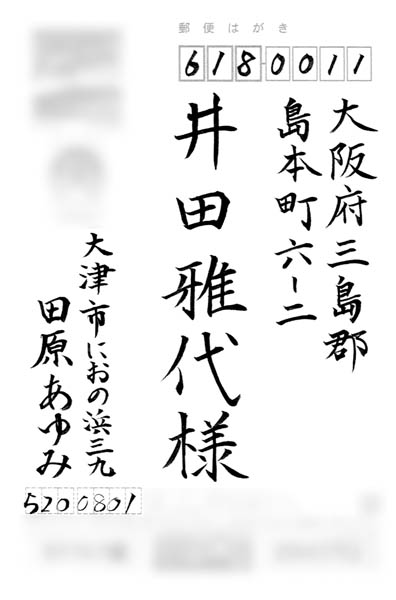 郵便はがき
618-0011
大阪府三島郡
島本町六ー二
井田雅代様
大津市におの浜三九
田原あゆみ
5200801